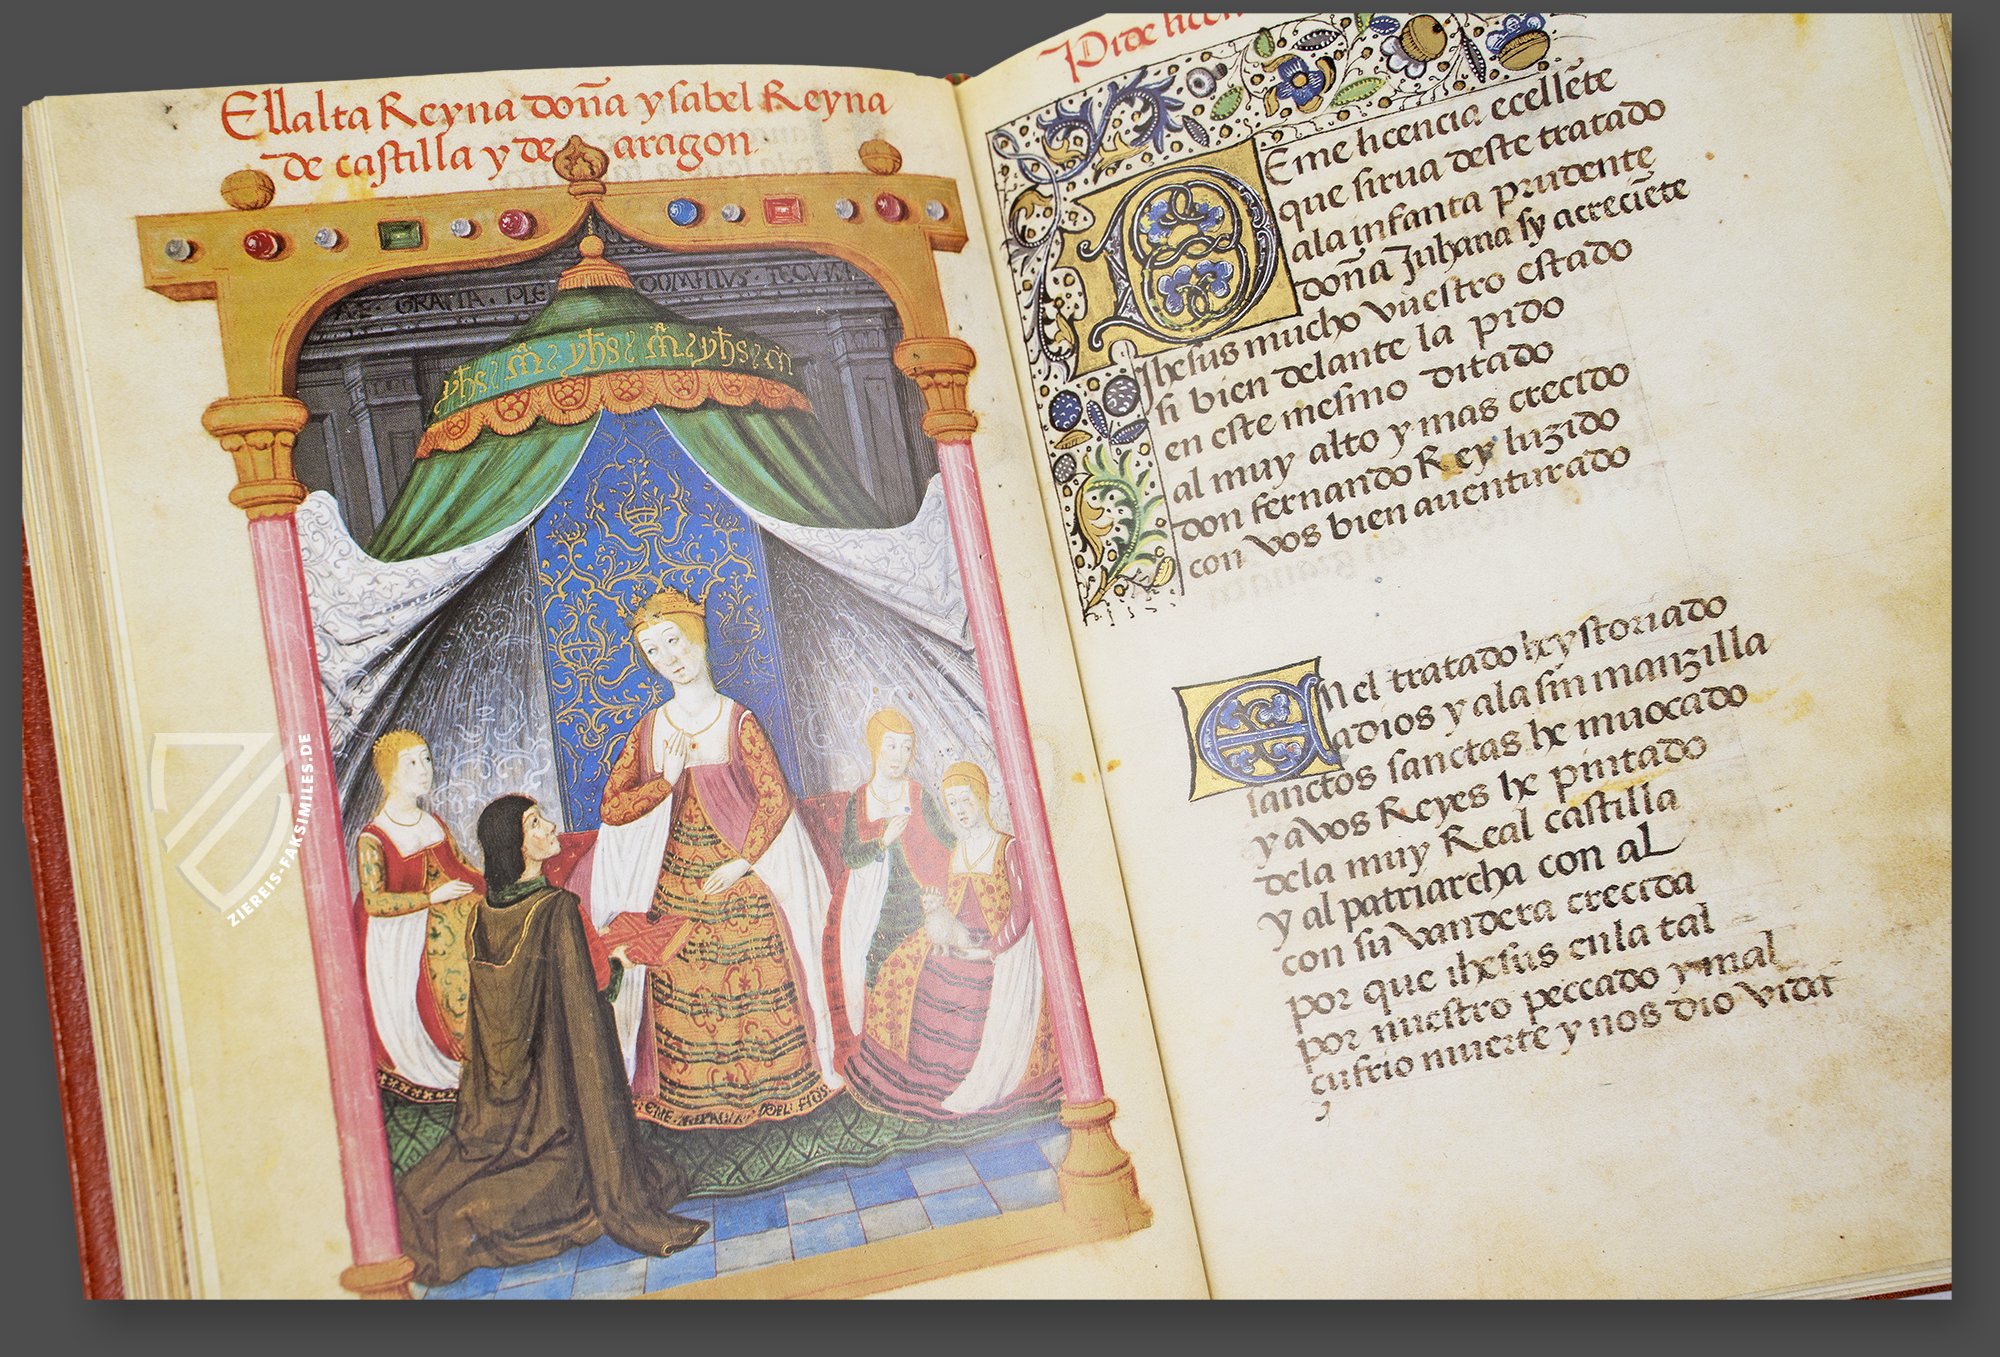 Ell alta Reyna doña ysabel Reyna
de castilla y de aragon
GRATIA · PLE DOMINUS · TECUM
yhs m̃ yhs m̃ yhs m̃
ZIEREIS-FAKSIMILES.DE
Pide licen
Deme licencia ecellẽte
que sirua deste tratado
ala infanta prudente
doña Juhana sy acreciẽte
Jhesus mucho vuestro estado
si bien delante la pido
en este mesmo ditado
al muy alto y mas crecido
don fernando Rey luzido
con vos bien auenturado
En el tratado hystoriado
adios y ala sin manzilla
sanctos sanctas he inuocado
y avos Reyes he pintado
dela muy Real castilla
y al patriarcha con al
con su vandera crecida
por que ihesus enla tal
por nuestro peccado y mal
çufrio muerte y nos dio vida